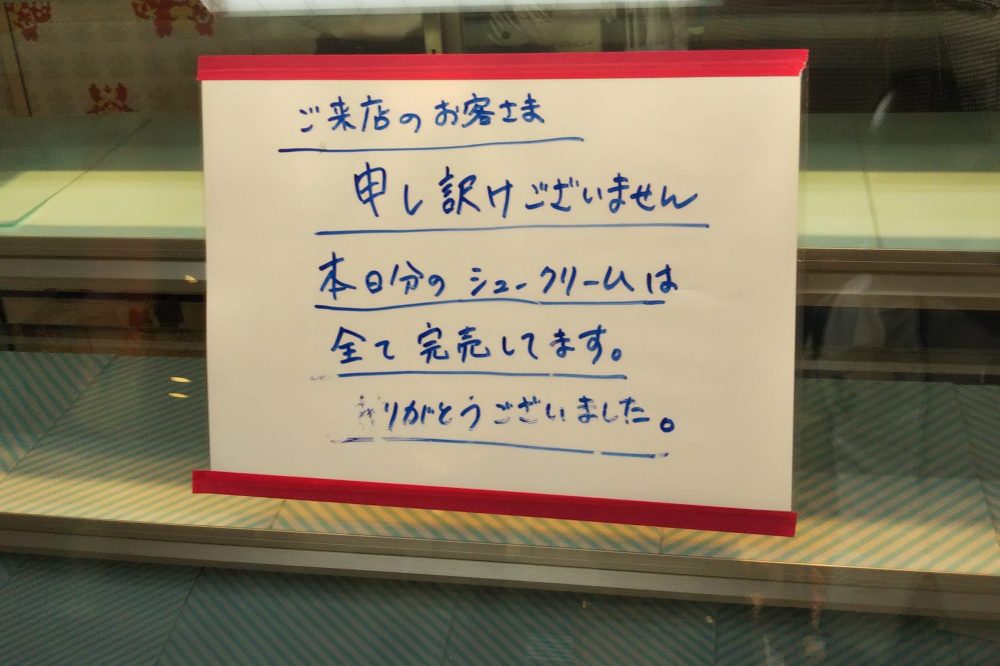 ご来店のお客さま
申し訳けございません
本日分のシュークリームは
全て完売してます。
ありがとうございました。